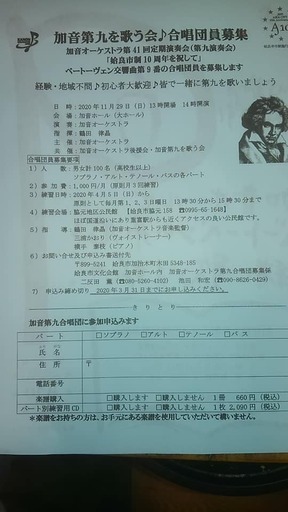 加音第九を歌う会♪合唱団員募集
加音オーケストラ第41回定期演奏会（第九演奏会）
「姶良市制10周年を祝して」
ベートーヴェン交響曲第9番の合唱団員を募集します
経験・地域不問♪初心者大歓迎♪皆で一緒に第九を歌いましょう
日 時：2020年11月29日（日）13時開場 14時開演
会 場：加音ホール（大ホール）
演 奏：加音オーケストラ
指 揮：
主 催：加音オーケストラ
共 催：加音オーケストラ後援会・加音第九を歌う会
合唱団員募集要項
1）人 数：男女計100名（高校生以上）
ソプラノ・アルト・テノール・バスの各パート
2）参加費：1,000円/月（原則月3回練習）
3）練習日時：2020年4月5日（日）から
原則として毎月第1、2、3日曜日 13時30分から15時30分まで
4）練習会場：脇元地区公民館 【姶良市脇元158 ☎0995-65-1648】
ほぼ国道沿いにあり重富駅からも近くアクセスの良い公民館です。
5）指 導： （加音オーケストラ音楽監督）
三浦かおり（ヴォイストレーナー）
（ピアノ）
6）お問い合せ及び申込み書送付先
〒899-5241 姶良市加治木町木田5348-185
姶良市文化会館 加音ホール内 加音オーケストラ第九合唱団募集係
二反田 薫（☎080-5260-4102） 池田 和宏（☎090-8626-0429）
7）申込み締め切り 2020年3月31日までにお申し込みください。
きりとり
加音第九合唱団に参加申込みます
パート □ソプラノ □アルト □テノール □バス
氏名
住所 〒
電話番号
楽譜購入 □購入します □購入しません 1冊 660円（税込）
パート別練習用CD □購入します □購入しません 1枚 2,090円（税込）
*楽譜をお持ちの方は、お手元にある楽譜を使用していただいて構いません。